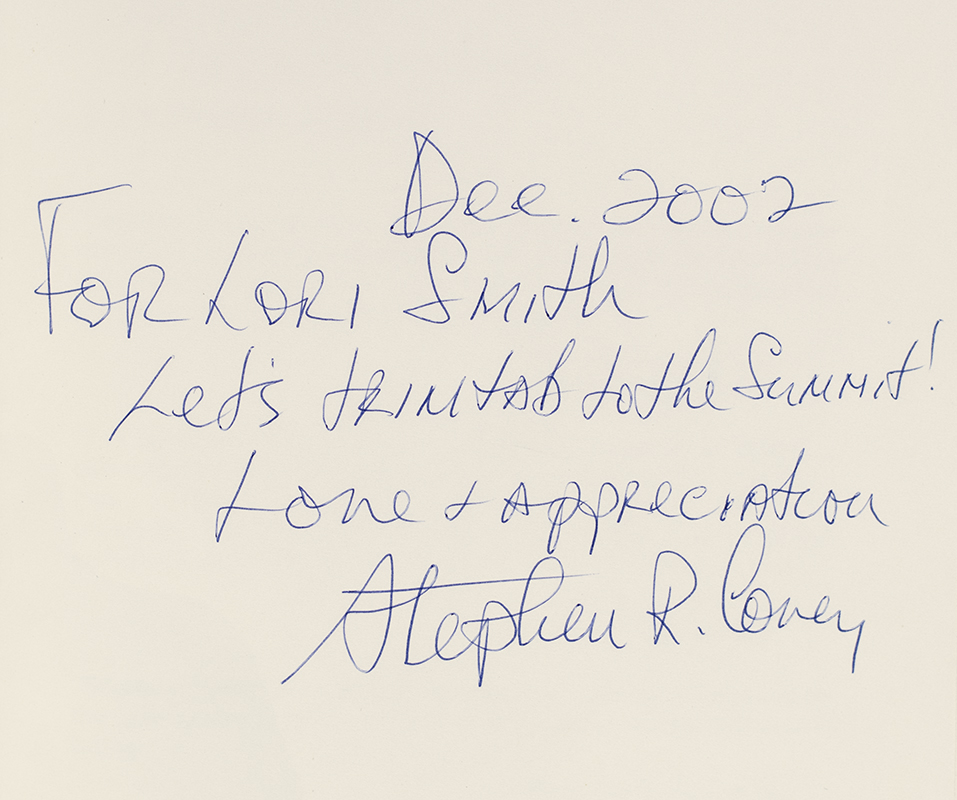 Dec. 2002
FOR LORI SMITH
Let's TRIMTAB to the SUMMIT!
Love + APPRECIATION
Stephen R. Covey